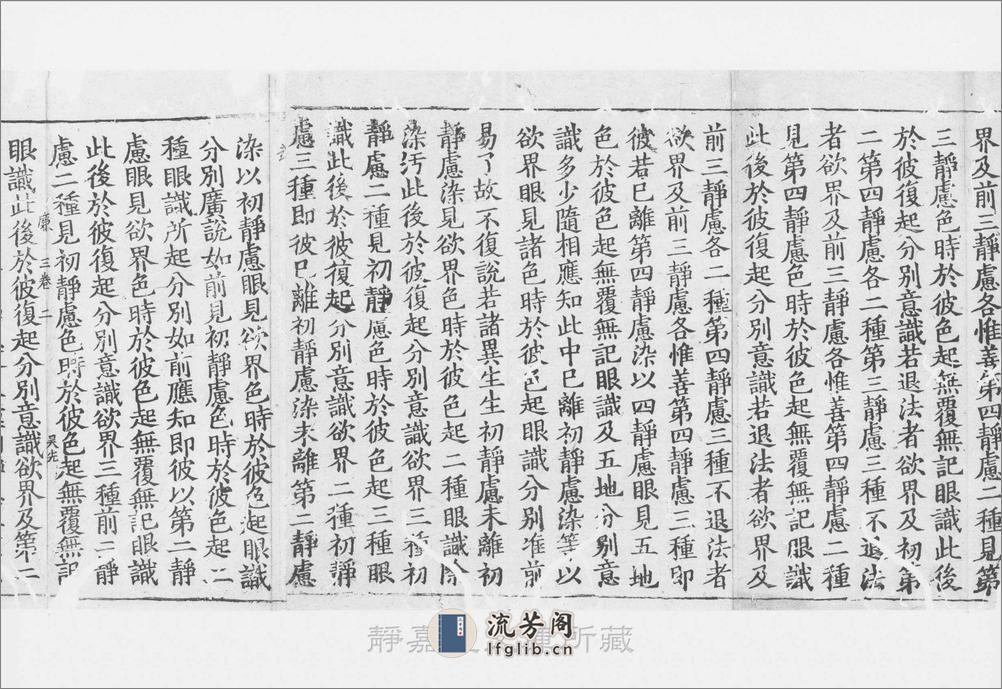 界及前三靜慮各惟善第四靜慮二種見第
三靜慮色時於彼色起無覆無記眼識此後
於彼復起分別意識若退法者欲界及初第
二第四靜慮各二種第三靜慮三種不退法
者欲界及前三靜慮各惟善第四靜慮二種
見第四靜慮色時於彼色起無覆無記眼識
此後於彼復起分別意識若退法者欲界及
前三靜慮各二種第四靜慮三種不退法者
欲界及前三靜慮各惟善第四靜慮三種即
彼若已離第四靜慮染以四靜慮眼見五地
色於彼色起無覆無記眼識及五地分別意
識多少隨相應知此中已離初靜慮染等以
欲界眼見諸色時於彼色起眼識分別准前
易了故不復說若諸異生生初靜慮未離初
靜慮染見欲界色時於彼色起二種眼識除
染汚此後於彼復起分別意識欲界三種初
靜慮二種見初靜慮色時於彼色起三種眼
識此後於彼復起分別意識欲界二種初靜
慮三種即彼已離初靜慮染未離第二靜慮
染以初靜慮眼見欲界色時於彼色起眼識
分別廣說如前見初靜慮色時於彼色起二
種眼識所起分別如前應知即彼以第二靜
慮眼見欲界色時於彼色起無覆無記眼識
此後於彼復起分別意識欲界三種前二靜
慮二種見初靜慮色時於彼色起無覆無記
廉 三卷 二
吴先
眼識此後於彼復起分別意識欲界及第二
靜嘉 所藏
流芳阁
lfglib.cn